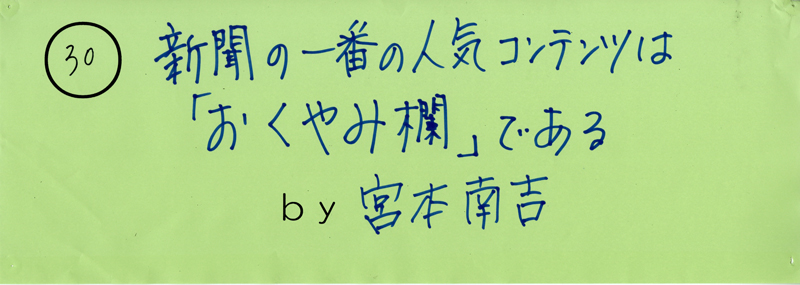 30 新聞の一番の人気コンテンツは
「おくやみ欄」である
by 宮本南吉